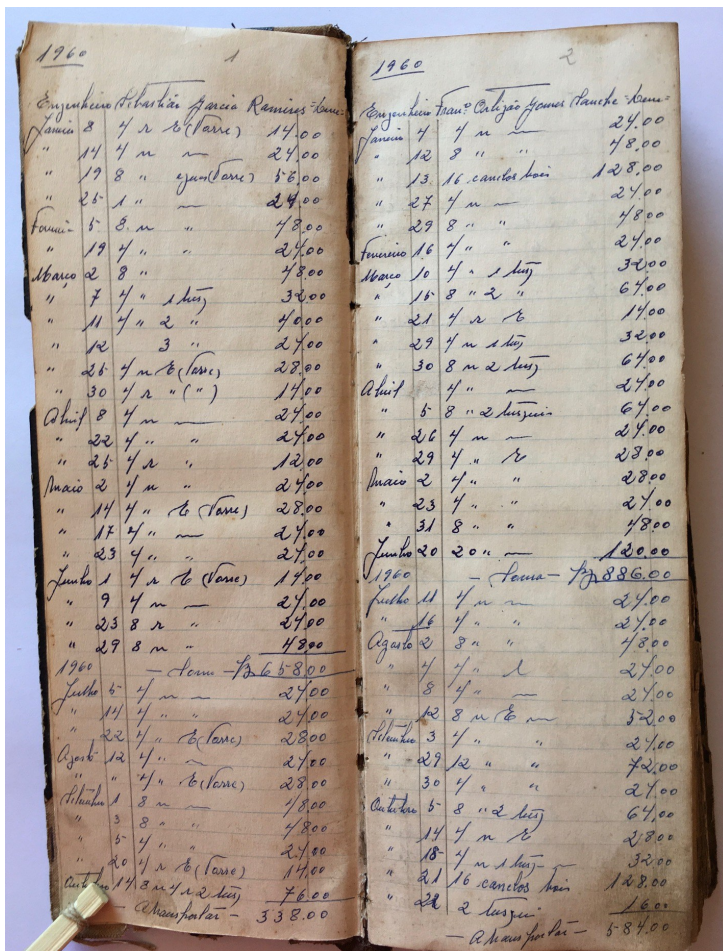 1960 1
Engenheiro Sebastião Garcia Ramires
Janeiro 8 4 r E (Torre) 14.00
" 14 4 n — 24.00
" 19 8 " eguas (Torre) 56.00
" 25 1 " — 24.00
5 8 n " 48.00
" 19 4 " " 24.00
Março 2 8 " 48.00
" 7 4 " 1 32.00
" 11 4 " 2 " 40.00
" 12 3 " 24.00
" 25 4 n E (Torre) 28.00
" 30 4 r " ( " ) 14.00
Abril 8 4 n — 24.00
" 22 4 " " 24.00
" 25 4 r " 12.00
Maio 2 4 n " 24.00
" 14 4 " E (Torre) 28.00
" 17 4 " — 24.00
" 23 4 " " 24.00
Junho 1 4 r E (Torre) 14.00
" 9 4 n — 24.00
" 23 8 r " 24.00
" 29 8 n " 48.00
1960 — Soma — 658.00
Julho 5 4 n — 24.00
" 14 4 " " 24.00
" 22 4 " E (Torre) 28.00
Agosto 12 4 " — 24.00
" " 4 " E (Torre) 28.00
Setembro 1 8 n — 48.00
" 3 8 " " 48.00
" 5 4 " " 24.00
" 20 4 r E (Torre) 14.00
Outubro 14 8 n 4 r 2 76.00
— A transportar — 338.00
1960 2
Engenheiro Franco Ortigão Gomes Sanches
Janeiro 4 4 n — 24.00
" 12 8 " " 48.00
" 13 16 canelos bois 128.00
" 27 4 n — 24.00
" 29 8 " " 48.00
Fevereiro 16 4 " " 24.00
Março 10 4 " 1 32.00
" 15 8 " 2 " 64.00
" 21 4 r E 14.00
" 29 4 n 1 32.00
" 30 8 n 2 64.00
Abril 4 " — 24.00
" 5 8 " 2 64.00
" 26 4 n — 24.00
" 29 4 " E 28.00
Maio 2 4 " " 28.00
" 23 4 " " 24.00
" 31 8 " " 48.00
Junho 20 20 " — 120.00
1960 — Soma — 886.00
Julho 11 4 n — 24.00
" 16 4 " " 24.00
Agosto 2 8 " " 48.00
" 4 4 " 24.00
" 8 4 " — 24.00
" 12 8 n E — 52.00
Setembro 3 4 " " 24.00
" 29 12 " " 72.00
" 30 4 " " 24.00
Outubro 5 8 " 2 64.00
" 14 4 n E 28.00
" 18 4 n 1 32.00
" 21 16 canelos bois 128.00
" 22 2 16.00
— A transportar — 584.00